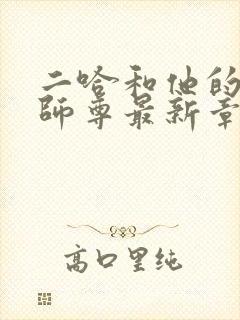 二哈和他的
师尊最新章
高口里纯